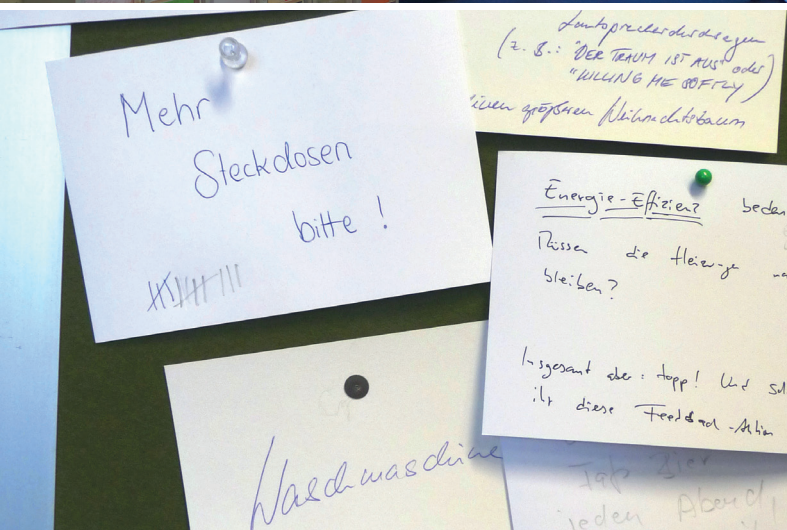 Mehr
Steckdosen
bitte !
Lautsprecherdurchsagen
(z. B.: "DER TRAUM IST AUS" oder
"KILLING ME SOFTLY)
einen größeren Weihnachtsbaum
Energie-Effizienz beden
Müssen die Heizungen
bleiben?
Insgesamt aber: topp! Und
ihr diese Feedback-Aktion
Waschmaschine
jeden Abend,